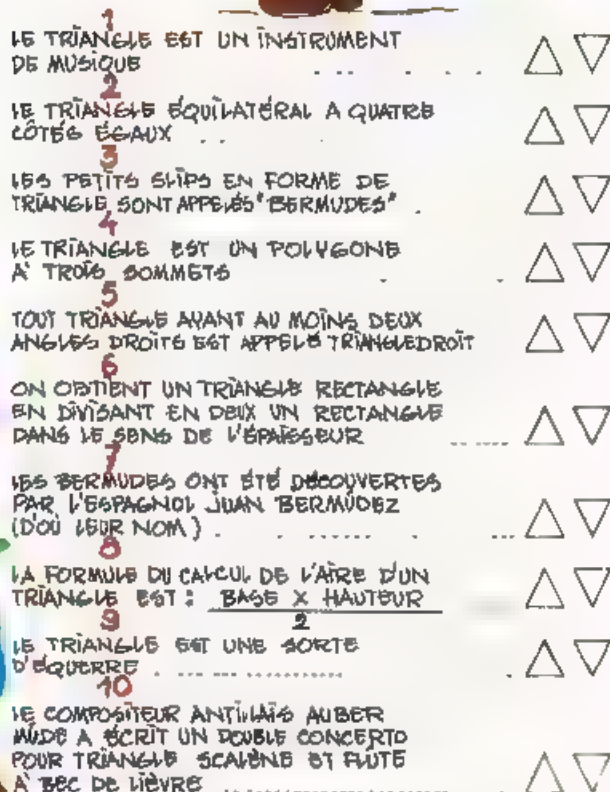 1
LE TRIANGLE EST UN INSTRUMENT
DE MUSIQUE
2
LE TRIANGLE ÉQUILATÉRAL A QUATRE
CÔTÉS ÉGAUX
3
LES PETITS SLIPS EN FORME DE
TRIANGLE SONT APPELÉS "BERMUDES"
4
LE TRIANGLE EST UN POLYGONE
À TROIS SOMMETS
5
TOUT TRIANGLE AYANT AU MOINS DEUX
ANGLES DROITS EST APPELÉ TRIANGLEDROIT
6
ON OBTIENT UN TRIANGLE RECTANGLE
EN DIVISANT EN DEUX UN RECTANGLE
DANS LE SENS DE L'ÉPAISSEUR
7
LES BERMUDES ONT ÉTÉ DÉCOUVERTES
PAR L'ESPAGNOL JUAN BERMÚDEZ
(D'OÙ LEUR NOM)
8
LA FORMULE DU CALCUL DE L'AIRE D'UN
TRIANGLE EST : BASE X HAUTEUR
2
9
LE TRIANGLE EST UNE SORTE
D'ÉQUERRE
10
LE COMPOSITEUR ANTILLAIS AUBER
MUDE A ÉCRIT UN DOUBLE CONCERTO
POUR TRIANGLE SCALÈNE ET FLÛTE
À BEC DE LIÈVRE